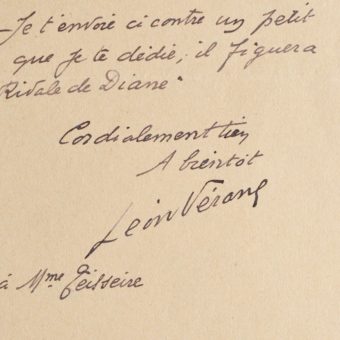 -Je t'envoie ci contre un petit
que je te dédie, il figuera
Rivale de Diane"
Cordialement tien
A bientôt
Léon Vérane
à Mme Teisseire